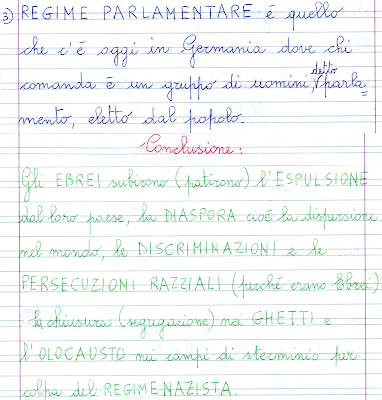 3) REGIME PARLAMENTARE é quello
che c'é oggi in Germania dove chi
comanda é un gruppo di uomini, detto parla=
mento, eletto dal popolo.
Conclusione:
Gli EBREI subirono (patirono) l'ESPULSIONE
dal loro paese, la DIASPORA cioé la dispersione
nel mondo, le DISCRIMINAZIONI e le
PERSECUZIONI RAZZIALI (perché erano Ebrei)
la chiusura (segregazione) nei GHETTI e
l'OLOCAUSTO nei campi di sterminio per
colpa del REGIME NAZISTA.